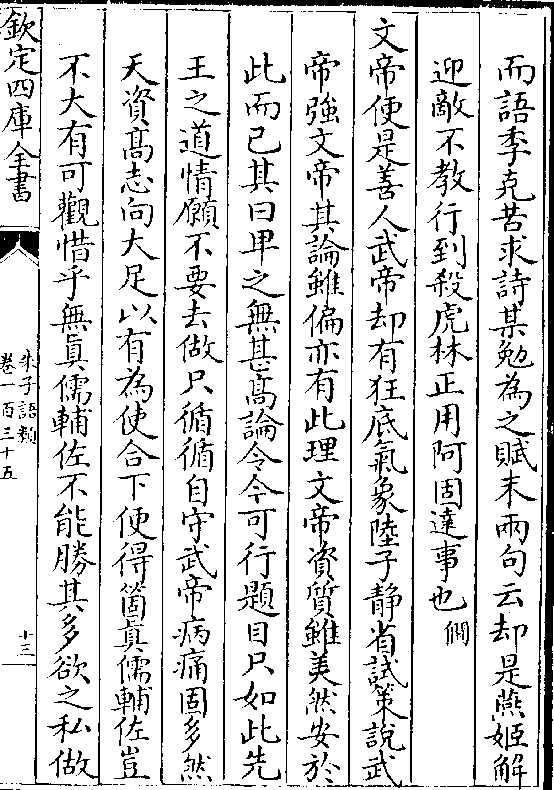 而語季克苦求詩某勉為之賦末兩句云却是燕姬解
迎敵不教行到殺虎林正用阿固達事也 僩
文帝便是善人武帝却有狂底氣象陸子静省試策說武
帝強文帝其論雖偏亦有此理文帝資質雖美然安於
此而已其曰卑之無甚髙論令今可行題目只如此先
王之道情願不要去做只循循自守武帝病痛固多然
天資髙志向大足以有為使合下便得箇真儒輔佐豈
不大有可觀惜乎無真儒輔佐不能勝其多欲之私做
欽定四庫全書
朱子語類
卷一百三十五
十三